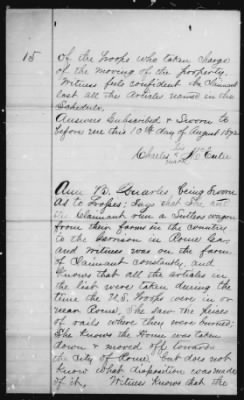 15
of the troops who taken charge
of the moving of the property.
Witness feels confident the Claimant
lost all the articles named in the
Schedule.
Answers Subscribed & Sworn to
before me this 10th day of August 1872
his
Charles X McEntee
mark
Ann B. Quarles being Sworn
as to Losses; Says that She and
the Claimant run a Sutlers wagon
from their farm in the Country
to the Garrison in Rome Ga,
and Witness was on the farm
of Claimant constantly, and
Knows that all the articles in
the list were taken during the
time the U.S. Troops were in or
near Rome, She saw the pieces
of rails where they were burned;
She knows the House was taken
down & moved off towards
the City of Rome, but does not
know what disposition was made
of it. Witness Knows that the